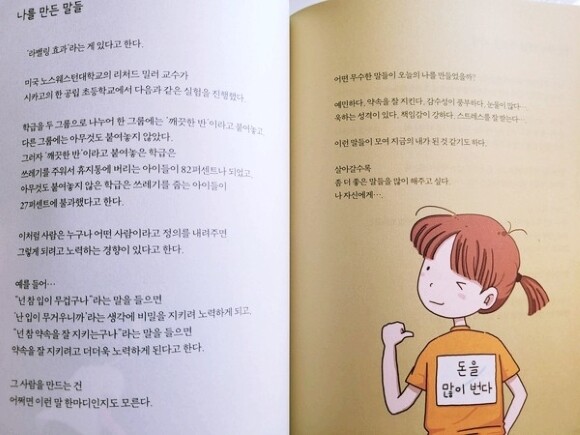 나를 만든 말들
'라벨링 효과'라는 게 있다고 한다.
미국 노스웨스턴대학교의 리처드 밀러 교수가
시카고의 한 공립 초등학교에서 다음과 같은 실험을 진행했다.
학급을 두 그룹으로 나누어 한 그룹에는 '깨끗한 반'이라고 붙여놓고
다른 그룹에는 아무것도 붙여놓지 않았다.
그러자 '깨끗한 반'이라고 붙여놓은 학급은
쓰레기를 주워서 휴지통에 버리는 아이들이 82퍼센트나 되었고,
아무것도 붙여놓지 않은 학급은 쓰레기를 줍는 아이들이
27퍼센트에 불과했다고 한다.
이처럼 사람은 누구나 어떤 사람이라고 정의를 내려주면
그렇게 되려고 노력하는 경향이 있다고 한다.
예를 들어…
"넌 참 입이 무겁구나"라는 말을 들으면
'난 입이 무거우니까'라는 생각에 비밀을 지키려 노력하게 되고,
"넌 참 약속을 잘 지키는구나"라는 말을 들으면
약속을 잘 지키려고 더더욱 노력하게 된다고 한다.
그 사람을 만드는 건
어쩌면 이런 말 한마디인지도 모른다.
어떤 무수한 말들이 오늘의 나를 만들었을까?
예민하다, 약속을 잘 지킨다, 감수성이 풍부하다, 눈물이 많다…
욱하는 성격이 있다, 책임감이 강하다, 스트레스를 잘 받는다…
이런 말들이 모여 지금의 내가 된 것 같기도 하다.
살아갈수록
좀 더 좋은 말들을 많이 해주고 싶다.
나 자신에게….
돈을
많이 번다